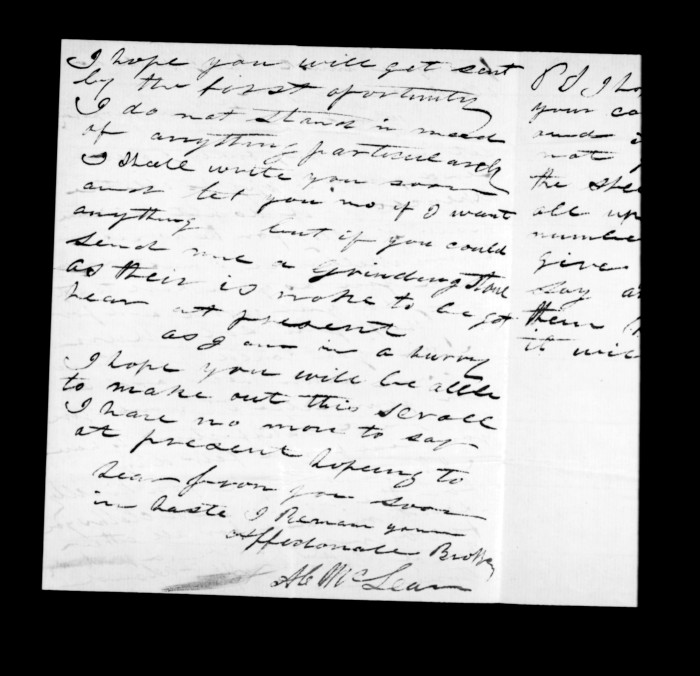 I hope you will get sent
by the first oportunity
I do not stand in need
of anything particularly
I Shall write you soon
and let you no if I want
anything but if you could
send me a Grinding Stone
as their is none to be got
hear at present
as I am in a hurry
I hope you will be able
to make out this scroll
I have no more to say
at present hopeing to
hear from you soon
in haste I Reman your
Affectonate Brother
McLean
P S I
your
and
not
the
all up
give
say
them
it will